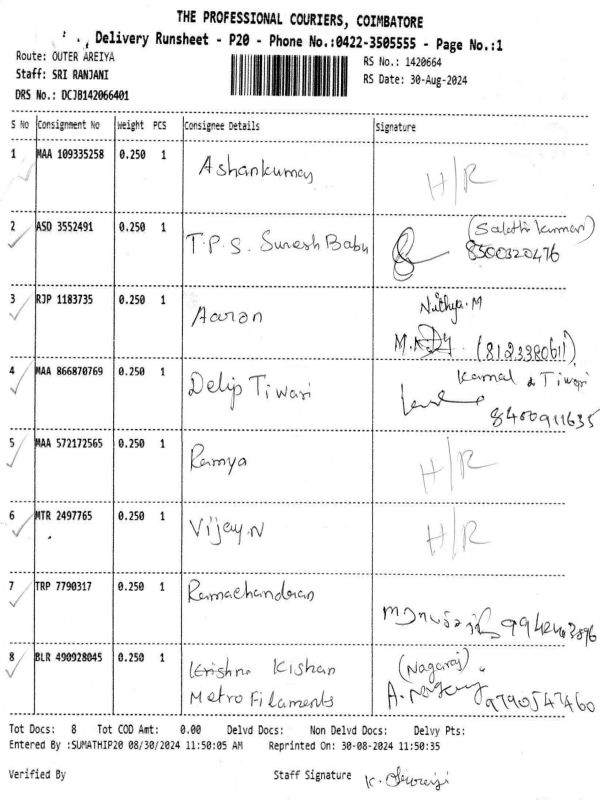 THE PROFESSIONAL COURIERS, COIMBATORE
Delivery Runsheet - P20 - Phone No.:0422-3505555 - Page No.:1
Route: OUTER AREIYA
RS No.: 1420664
Staff: SRI RANJANI
RS Date: 30-Aug-2024
DRS No.: DCJB142066401
S No Consignment No Weight PCS Consignee Details Signature
1 MAA 109335258 0.250 1 Ashankumar H/R
2 ASD 3552491 0.250 1 T.P.S. Suresh Babu (Sakthi kumar)
8300320476
3 RJP 1183735 0.250 1 Aaron Nithya.M
(8123380611)
4 MAA 866870769 0.250 1 Delip Tiwari Kamal Tiwari
8400911635
5 MAA 572172565 0.250 1 Ramya H/R
6 MTR 2497765 0.250 1 Vijay.N H/R
7 TRP 7790317 0.250 1 Ramachandran
8 BLR 490928045 0.250 1 Krishna Kishan (Nagaraj)
Metro Filaments 9790547460
Tot Docs: 8 Tot COD Amt: 0.00 Delvd Docs: Non Delvd Docs: Delvy Pts:
Entered By :SUMATHIP20 08/30/2024 11:50:05 AM Reprinted On: 30-08-2024 11:50:35
Verified By Staff Signature